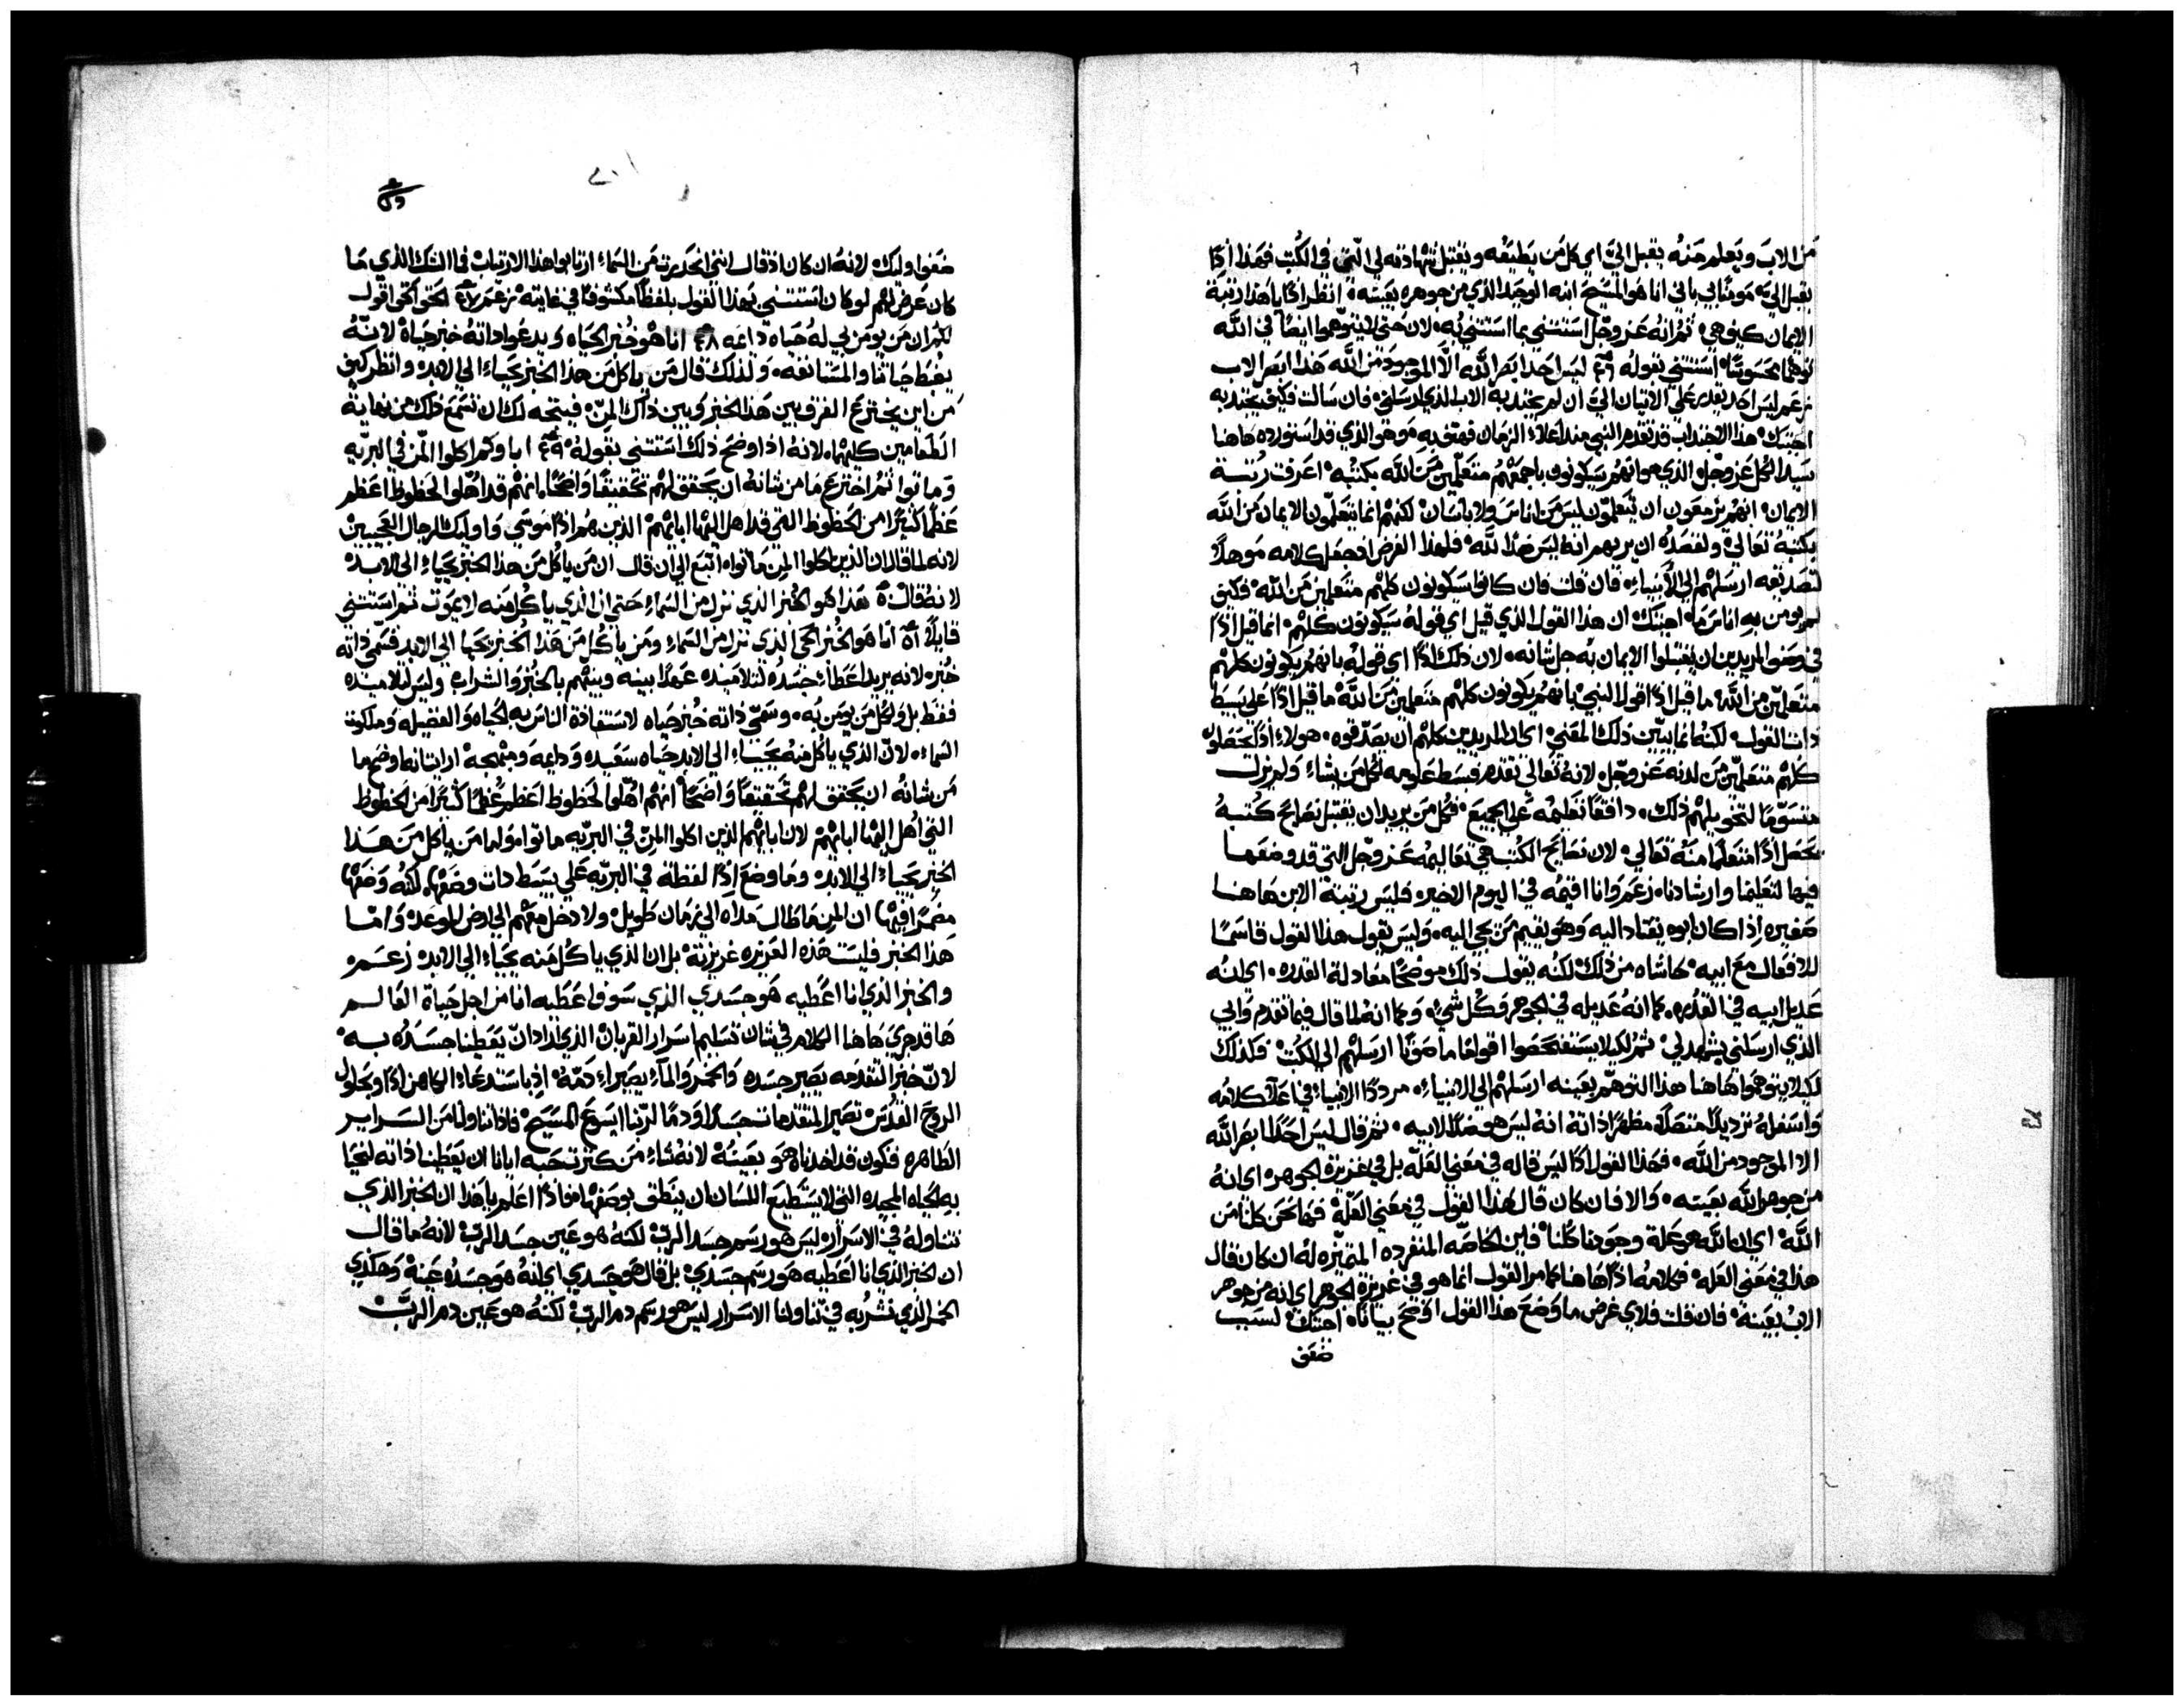 من الاب ويعلم منه يقبل اليَّ اي كل من يطيعه ويقتبل شهادته لي التي في الكتب فهذا اذًا
يقبل اليَّ مومنًا بي باني انا هو المسيح ابنه الوحيد الذي من جوهره بعينه انظر اذًا يا هذا رتبة
الايمان كيف هي ثم انه عز وجل استثنى بما استثنى به لان حتى لا يتوهموا ايضًا في الله
توهمًا محسوسًا استثنى بقوله ٤٦ ليس احدا بصر الله الا الموجود من الله هذا ابصر الاب
زعم ليس احد يقدر على الاتيان اليَّ ان لم يجتذبه الاب الذي ارسلني فان سالت فكيف يجتذبه
اجبتك هذا الاجتذاب قد تقدم النبي منذ اعلاء الزمان فهتف به وهو الذي قد استورده هاهنا
سيد الكل عز وجل الذي هو انهم سيكونون باجمعهم متعلمين من الله بكتبه اعرفت رتبة
الايمان انهم يزمعون ان يتعلمون ليس من اناس ولا بانسان لكنهم انما يتعلمون الايمان من الله
بكتبه تعالى ولقصده ان يريهم انه ليس ضد الله فلهذا الغرض اذ جعل كلامه موهلًا
لتصديقه ارسلهم الى الانبياء فان قلت فان كانوا سيكونون كلهم متعلمين من الله فكيف
لم يومن به اناس ما اجبتك ان هذا القول الذي قيل اي قوله سيكونون كلهم انما قيل اذًا
في وصف المريدين ان يقتبلوا الايمان به جل شانه لان ذلك اذًا اي قوله بانهم يكونون كلهم
متعلمين من الله ما قيل اذًا قول النبي بانهم يكونون كلهم متعلمين من الله ما قيل اذًا على بسيط
ذات القول لكنه انما يبين ذلك المعني اي ان المريدين كلهم ان يصدقوه هولاء اذًا يحصلون
كلهم متعلمين من لدنه عز وجل لانه تعالى تقدم فبسط علومه لكل من يشاء ولم يزل
متسوما لتخويلهم ذلك دافقًا تعليمه على الجميع فكل من يريد ان يقتبل نصايح كتبه
يحصل اذًا متعلمًا منه تعالي لان نصايح الكتب هي تعاليمه عز وجل التي قد وضعها
فيها لتعليمنا وارشادنا زعم وانا اقيمه في اليوم الاخير فليس رتبة الابن هاهنا
صغيره اذا كان ابوه يقتاد اليه وهو يقيم من يجي اليه وليس يقول هذا القول قاسمًا
للافعال مع ابيه حاشاه من ذلك لكنه يقول ذلك موضحًا معادلة القدره اي انه
عديل ابيه في القدره كما انه عديله في الجوهر وكل شيء وكما انه لما قال فيما تقدم وابي
الذي ارسلني يشهد لي ثم لكيلا يستفحصوا اقوالها ما صوّبًا ارسلهم الى الكتب فكذلك
لكيلا يتوهموا هاهنا هذا التوهم بعينه ارسلهم الى الانبياء مرددًا الانبياء في اعلا كلامه
واسفله ترديدًا متصلًا مظهرًا ذاته انه ليس هو ضدًا لابيه ثم قال ليس احدًا ابصر الله
الا الموجود من الله فهذا القول اذًا ليس قاله في معني العلة بل في غريزة الجوهر اي انه
من جوهر الله بعينه والا فان كان قال هذا القول في معني العلة فها نحن كلنا من
الله اي ان الله هو علة وجودنا كلنا فاين الخاصه المنفرده المتميزه له ان كان قال
هذا في معنى العلة فكلامه اذًا هاهنا كما مر القول انما هو في غريزة الجوهر اي انه من جوهر
الاب بعينه فان قلت فلاي غرض ما وضع هذا القول اوضح بيانًا اجبتك لسبب
ضعف
ضعف اوليك لانه ان كان اذ قال انني انحدرت من السماء ارتابوا هذا الارتياب في الشك الذي ما
كان عرض لهم لو كان استثني بهذا القول بلفظ مكشوفًا في غايته زعم ٤٧ الحق الحق اقول
لكم ان من يومن بي له حياه دايمه ٤٨ انا هو خبز الحياه ويدعوا ذاته خبز حياة لانه
يضبط حياتنا والمستانفه ولذلك قال من ياكل من هذا الخبز يحياء الي الابد وانظر كيف
من اين يخترع الفرق بين هذا الخبز وبين ذاك المن فيتجه لك ان تسمع ذلك من نهاية
الطعامين كليهما لانه اذا وضح ذلك استثني بقوله ٤٩ اباوكم اكلوا المن في البريه
وماتوا ثم اخترع ما من شانه ان يحقق لهم تحقيقًا واضحًا انهم قد اهلوا لحظوظ اعظم
عظمًا كثيرًا من الحظوظ التي قد اهل اليها ابايهم الذين هم اذًا موسي واوليك الرجال العجيبين
لانه لما قال ان الذين اكلوا المن ماتوا اتبع الى ان قال ان من ياكل من هذا الخبز يحياء الى الابد
لانه قال ٥٠ هذا هو الخبز الذي نزل من السماء حتي ان الذي ياكل منه لا يموت ثم استثني
قايلًا ٥١ انا هو الخبز الحي الذي نزل من السماء ومن ياكل من هذا الخبز يحيا الى الابد فسمي ذاته
خبزه لانه يريد اعطاء جسده لتلاميذه عهدًا بينه وبينهم بالخبز والشراب وليس لتلاميذه
فقط بل ولكل من يومن به وسمي ذاته خبز حياه لاستفادة الناس به الحياه والفضيله وملكوت
السماء لان الذي ياكل منه يحياء الى الابد حياه سعيده ودايمه ومبتهجه اراد انه اوضح ما
من شانه ان يحقق لهم تحقيقًا واضحًا انهم اهلوا لحظوظ اعظم عظمًا كثيرًا من الحظوظ
التي اهل اليها ابايهم لان ابايهم الذين اكلوا المن في البريه ماتوا واما من ياكل من هذا
الخبز يحياء الى الابد وما وضع اذًا لفظة في البريه على بسيط ذات وضعها لكنه وضعها
مضمرًا فيها ان المن ما طال مداه الى زمان طويل ولا دخل معهم الى ارض الوعد واما
هذا الخبز فليست هذه الغريزه غريزته بل ان الذي ياكل منه يحياء الى الابد زعم
والخبز الذي انا اعطيه هو جسدي الذي سوف اعطيه انا من اجل حياة العالم
ها قد جري هاهنا الكلام في شان تسليم اسرار القربان الذي اراد ان يعطينا جسده به
لان خبز التقدمه يصير جسده والخمر والماء يصيراء دمه اذ باستدعاء الكاهن اذًا وبحلول
الروح القدس تصير المتقدمات جسدًا ودمًا لربنا ايسوع المسيح فاذا تناولنا من السراير
الطاهره فنكون قد اخذناه هو بعينه لانه شاء من كثرت حبه ايانا ان يعطينا ذاته لنحيا
به الحياه المجيده التي لا يستطيع اللسان ان ينطق بوصفها فاذًا اعلم يا هذا ان الخبز الذي
نتناوله في الاسرار ليس هو رسم جسد الرب لكنه هو عين جسد الرب لانه ما قال
ان الخبز الذي انا اعطيه هو رسم جسدي بل قال هو جسدي اي انه هو جسده عينه وهكذي
الخمر الذي نشربه في تناولنا الاسرار ليس هو رسم دم الرب لكنه هو عين دم الرب